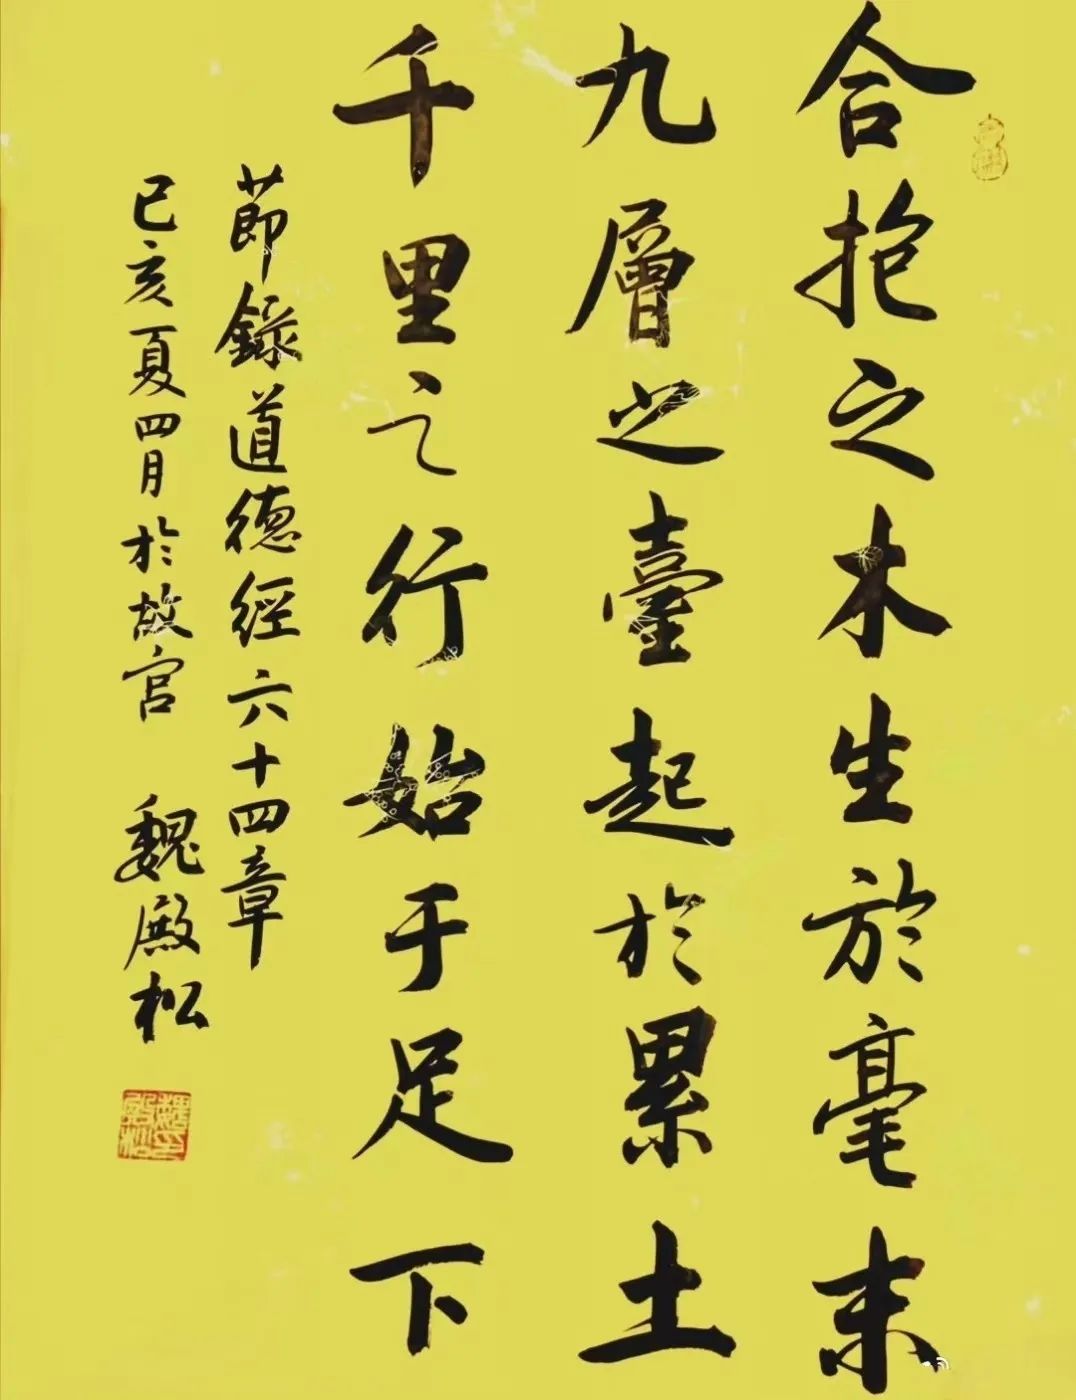 合抱之木生於毫末
九層之臺起於累土
千里之行始于足下
節錄道德經六十四章
已亥夏四月於故宫 魏殿松